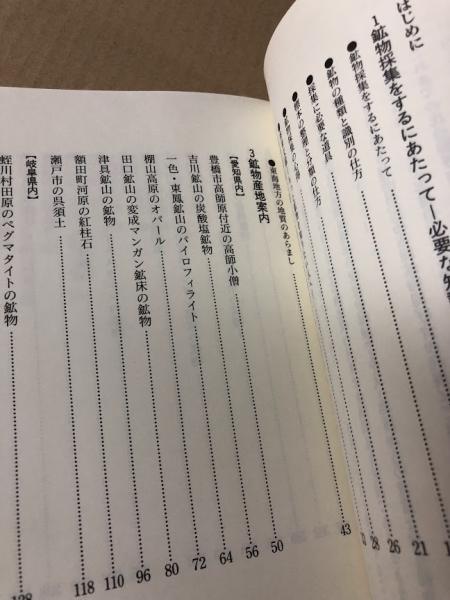 はじめに
1 鉱物採集をするにあたって―必要な
●鉱物採集をするにあたって 21
●鉱物の種類と識別の仕方 26
●採集に必要な道具 28
●標本の整理と分類の仕方
●東海地方の地質のあらまし 43
3 鉱物産地案内
【愛知県内】
豊橋市高師原付近の高師小僧 50
吉川鉱山の炭酸塩鉱物 56
一色・東鳳鉱山のパイロフィライト 64
棚山高原のオパール 72
田口鉱山の変成マンガン鉱床の鉱物 80
津具鉱山の鉱物 96
額田町河原の紅柱石 110
瀬戸市の呉須土 118
【岐阜県内】
蛭川村田原のペグマタイトの鉱物 128